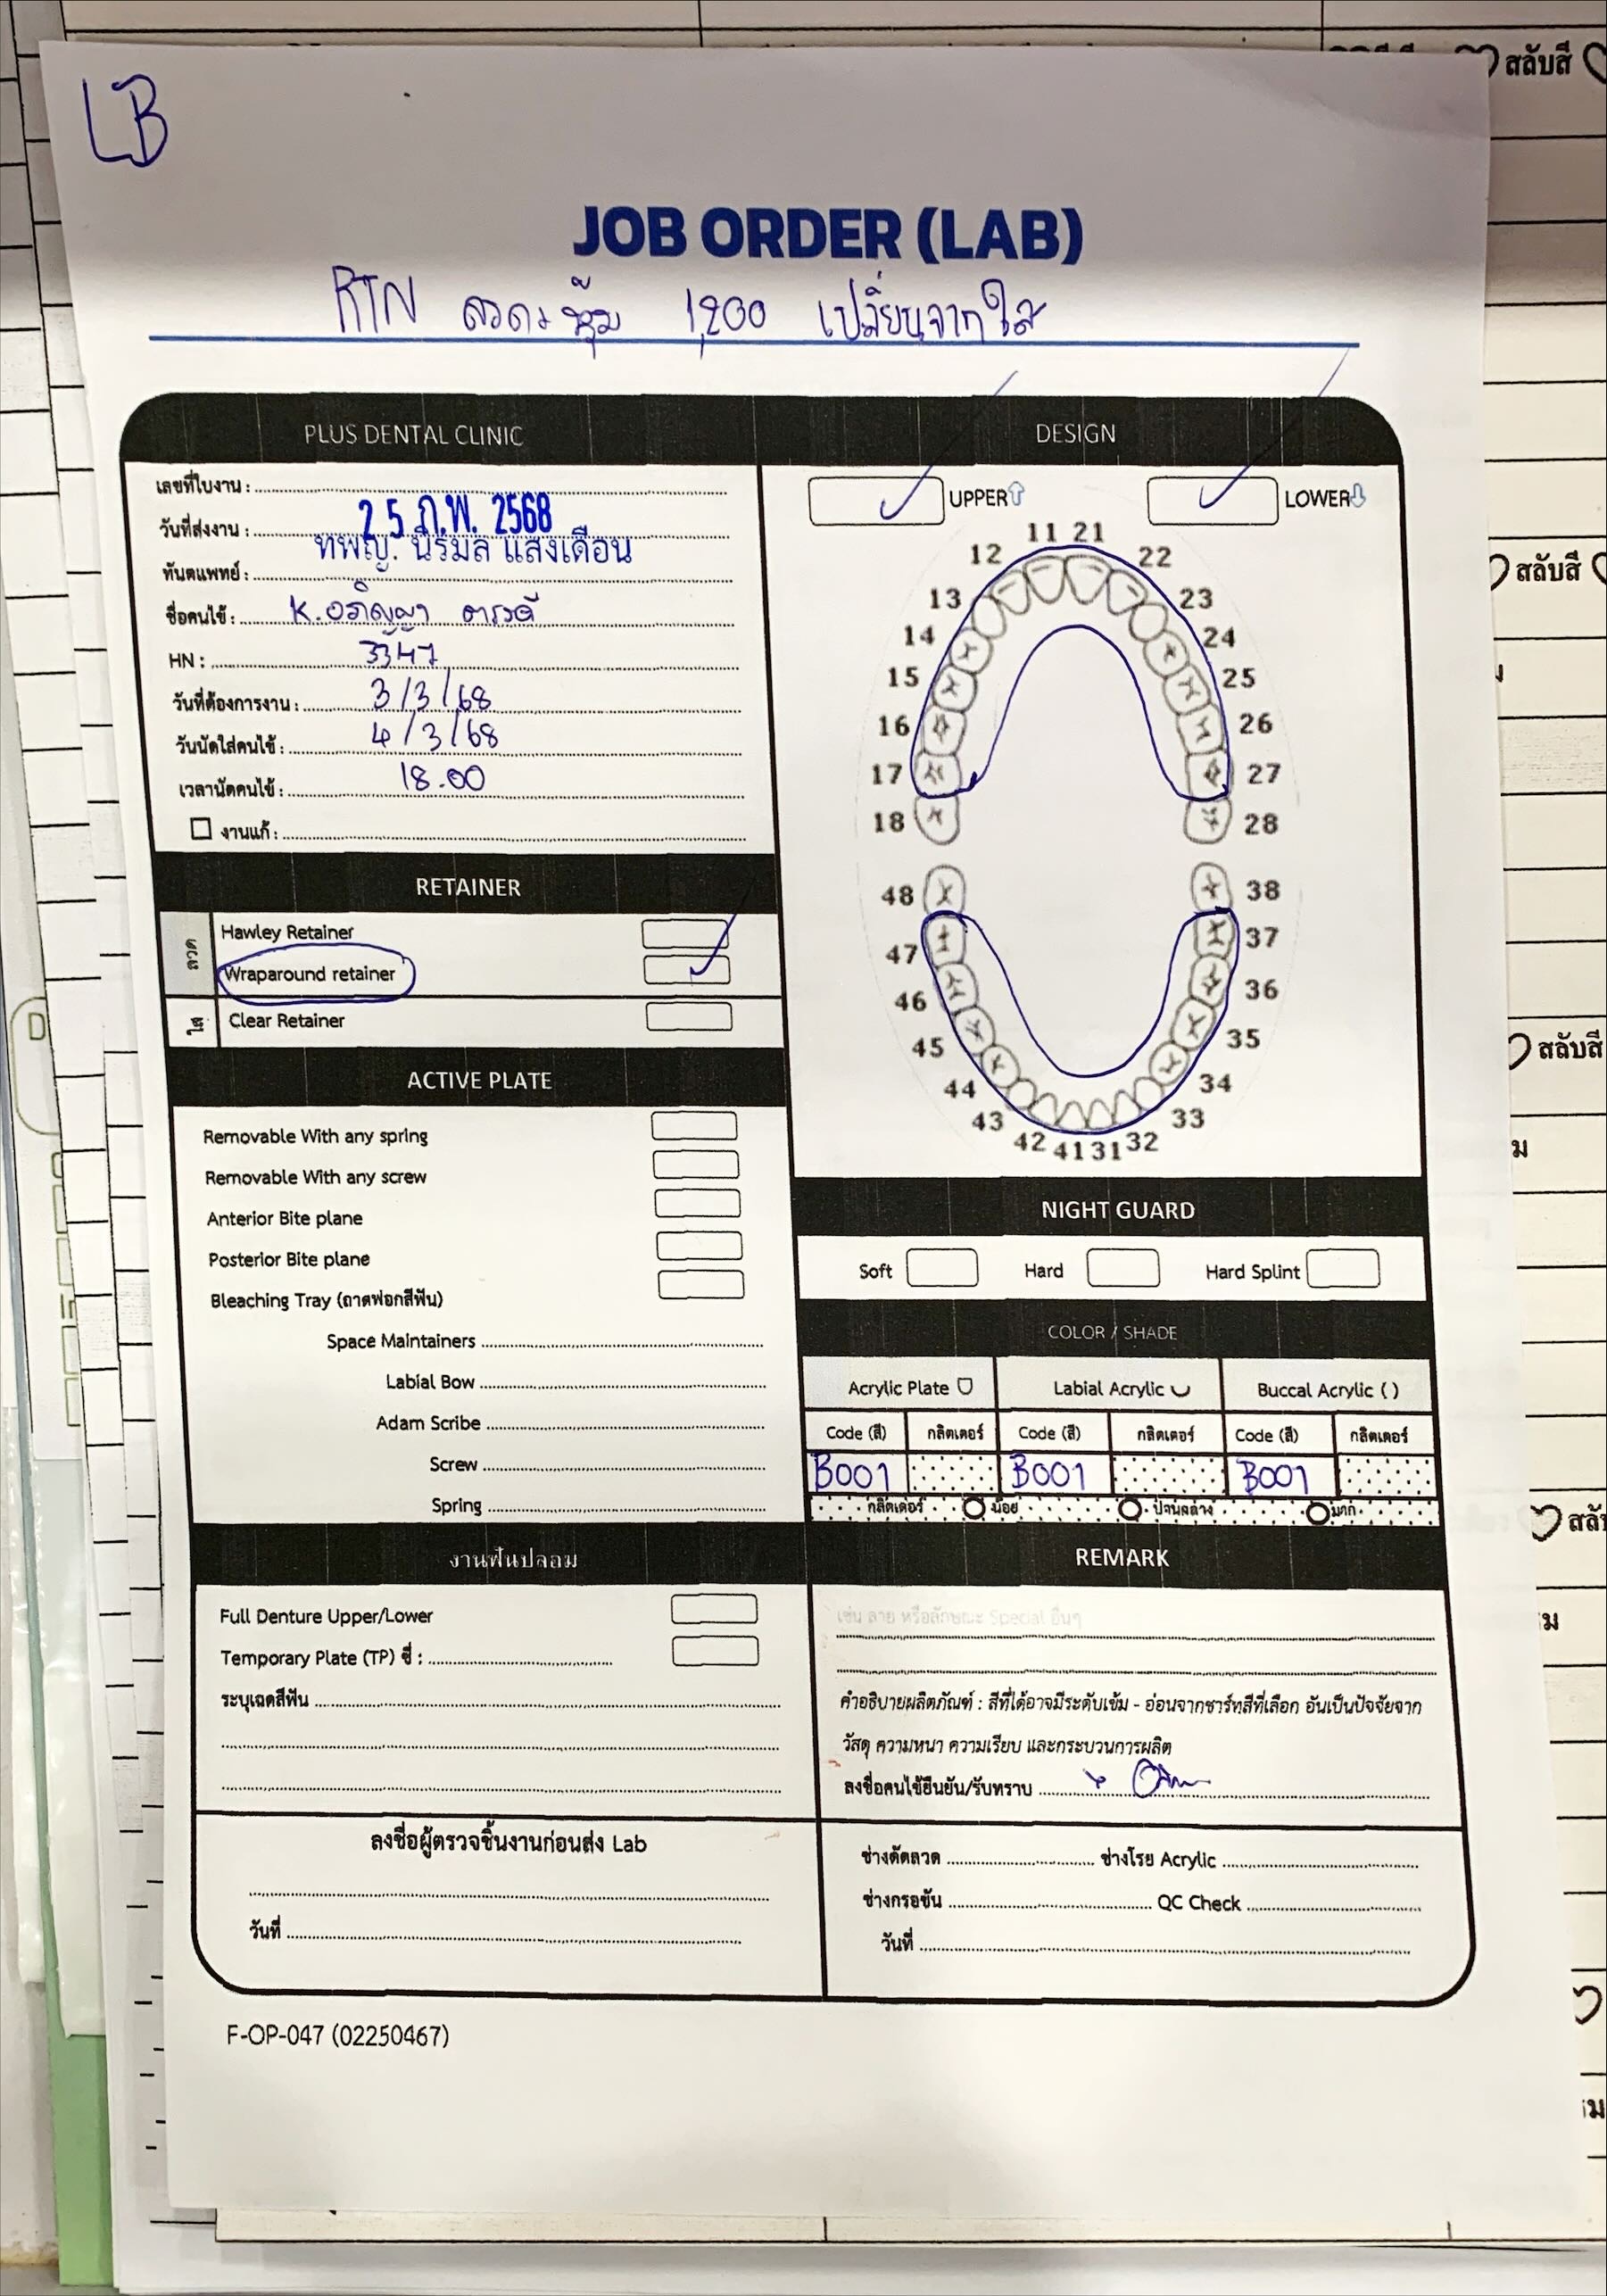 LB
JOB ORDER (LAB)
RTN ลวด หุ้ม 1,200 เปลี่ยนจากใส
PLUS DENTAL CLINIC
เลขที่ใบงาน :
วันที่ส่งงาน : 25 ก.พ. 2568
ทันตแพทย์ : ทพญ. นิรมล แสงเดือน
ชื่อคนไข้ : K. อภิญญา
HN : 3347
วันที่ต้องการงาน : 3/3/68
วันนัดใส่คนไข้ : 4/3/68
เวลานัดคนไข้ : 18.00
งานแก้ :
DESIGN
UPPER
LOWER
11 21
12 22
13 23
14 24
15 25
16 26
17 27
18 28
48 38
47 37
46 36
45 35
44 34
43 33
42 41 31 32
RETAINER
ลวด
Hawley Retainer
Wraparound retainer
ใส
Clear Retainer
ACTIVE PLATE
Removable With any spring
Removable With any screw
Anterior Bite plane
Posterior Bite plane
Bleaching Tray (ถาดฟอกสีฟัน)
Space Maintainers
Labial Bow
Adam Scribe
Screw
Spring
NIGHT GUARD
Soft Hard Hard Splint
COLOR / SHADE
Acrylic Plate Labial Acrylic Buccal Acrylic ( )
Code (สี) กลิตเตอร์ Code (สี) กลิตเตอร์ Code (สี) กลิตเตอร์
B001 B001 B001
กลิตเตอร์ น้อย ปานกลาง มาก
งานฟันปลอม
Full Denture Upper/Lower
Temporary Plate (TP) ซี่ :
ระบุเฉดสีฟัน
REMARK
เช่น ลาย หรือลักษณะ Special อื่นๆ
คำอธิบายผลิตภัณฑ์ : สีที่ได้อาจมีระดับเข้ม - อ่อนจากชาร์ทสีที่เลือก อันเป็นปัจจัยจาก
วัสดุ ความหนา ความเรียบ และกระบวนการผลิต
ลงชื่อคนไข้ยืนยัน/รับทราบ
ลงชื่อผู้ตรวจชิ้นงานก่อนส่ง Lab
วันที่
ช่างดัดลวด ช่างโรย Acrylic
ช่างกรอขัน QC Check
วันที่
F-OP-047 (02250467)
สลับสี
สลับสี
สลับสี